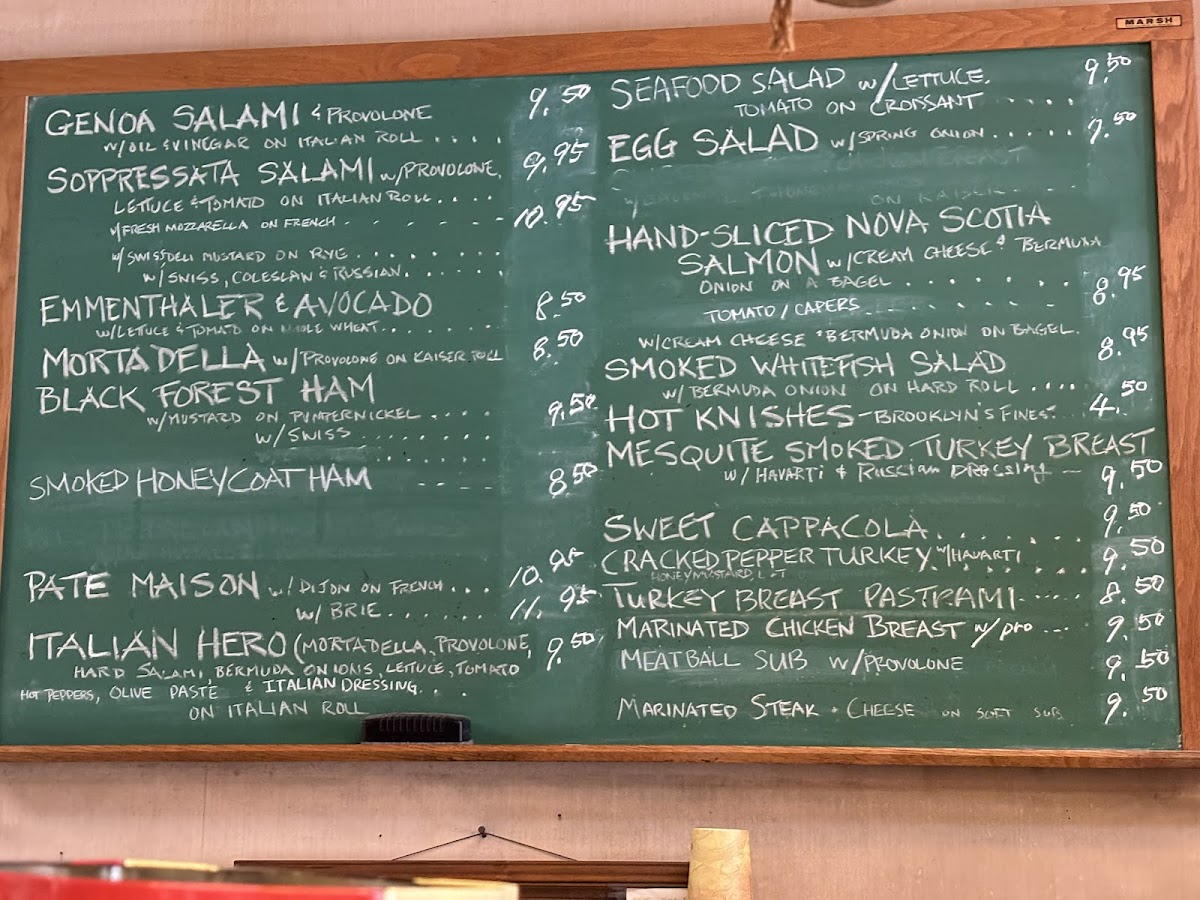 MARSH
GENOA SALAMI & PROVOLONE 9.50
W/OIL & VINEGAR ON ITALIAN ROLL . . . .
SOPPRESSATA SALAMI W/PROVOLONE, 9.95
LETTUCE & TOMATO ON ITALIAN ROLL . . . .
W/FRESH MOZZARELLA ON FRENCH - - - - - 10.95
W/SWISS DELI MUSTARD ON RYE . . . . . . . .
W/SWISS, COLESLAW & RUSSIAN . . . . . .
EMMENTHALER & AVOCADO 8.50
W/LETTUCE & TOMATO ON WHOLE WHEAT . . . . . . .
MORTADELLA W/PROVOLONE ON KAISER ROLL 8.50
BLACK FOREST HAM
W/MUSTARD ON PUMPERNICKEL . . . . 9.50
W/SWISS . . . . . . . .
SMOKED HONEYCOAT HAM - - - - 8.50
PATE MAISON W/ DIJON ON FRENCH . . . 10.95
W/ BRIE . . . . . 11.95
ITALIAN HERO (MORTADELLA, PROVOLONE, 9.50
HARD SALAMI, BERMUDA ONIONS, LETTUCE, TOMATO
HOT PEPPERS, OLIVE PASTE & ITALIAN DRESSING . . .
ON ITALIAN ROLL
SEAFOOD SALAD W/LETTUCE, 9.50
TOMATO ON CROISSANT . . . . .
EGG SALAD W/SPRING ONION . . . . . 9.50
ON KAISER
HAND-SLICED NOVA SCOTIA
SALMON W/CREAM CHEESE & BERMUDA
ONION ON A BAGEL . . . . . . . 8.95
TOMATO/CAPERS . . . . . .
W/CREAM CHEESE & BERMUDA ONION ON BAGEL.
SMOKED WHITEFISH SALAD 8.95
W/ BERMUDA ONION ON HARD ROLL . . . .
HOT KNISHES - BROOKLYN'S FINEST 4.50
MESQUITE SMOKED TURKEY BREAST
W/ HAVARTI & RUSSIAN DRESSING - 9.50
SWEET CAPPACOLA . . . . . . . 9.50
CRACKED PEPPER TURKEY W/HAVARTI 9.50
HONEY MUSTARD, L & T
TURKEY BREAST PASTRAMI ---- 8.50
MARINATED CHICKEN BREAST W/PRO --- 9.50
MEATBALL SUB W/PROVOLONE 9.50
MARINATED STEAK & CHEESE ON SOFT SUB 9.50